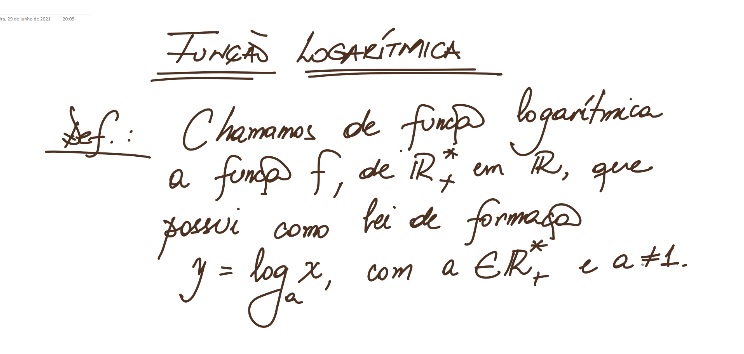 ira, 29 de junho de 2021 20:05
FUNÇÃO LOGARÍTMICA
Def.: Chamamos de função logarítmica
a função f, de ℝ₊* em ℝ, que
possui como lei de formação
y = logₐ x, com a ∈ ℝ₊* e a ≠ 1.